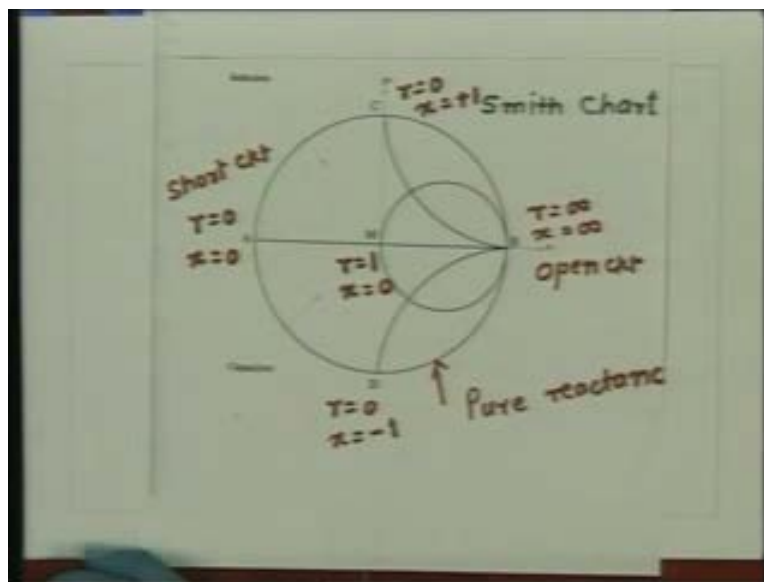 r=0
C
x=+1 Smith Chart
Short ckt
r=0
x=0
A
M
r=1
x=0
r=∞
x=∞
B
Open ckt
D
r=0
x=-1
Pure reactanc